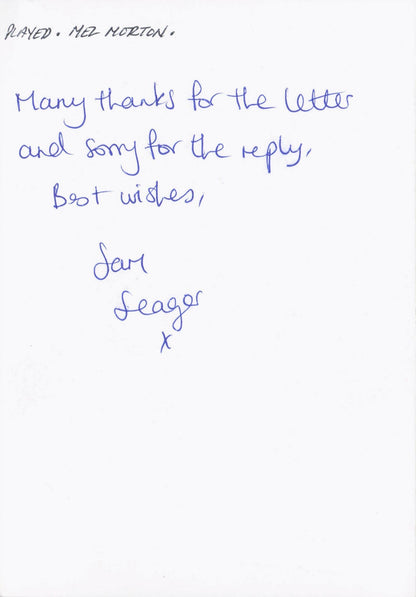 PLAYED. MEL MORTON.
Many thanks for the letter
and sorry for the reply,
Best wishes,
Sam
Seager
x